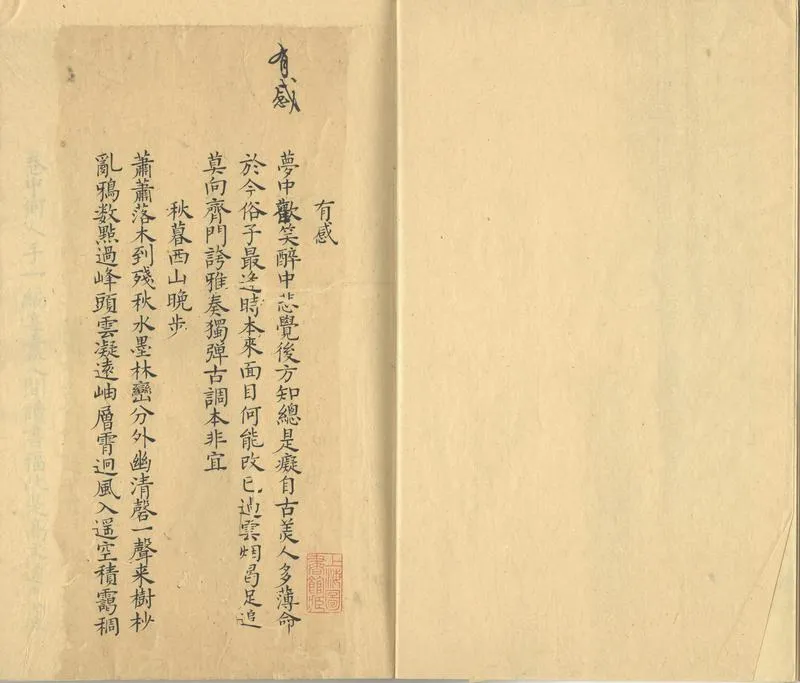 有感
有感
夢中歡笑醉中悲覺後方知總是癡自古美人多薄命
於今俗子最逢時本來面目何能改已過雲烟曷足追
莫向齊門誇雅奏獨彈古調本非宜
秋暮西山晚步
蕭蕭落木到殘秋水墨林巒分外幽清磬一聲来樹杪
亂鴉数點過峰頭雲凝遠岫層霄迥風入遥空積靄稠
上海圖
書館藏